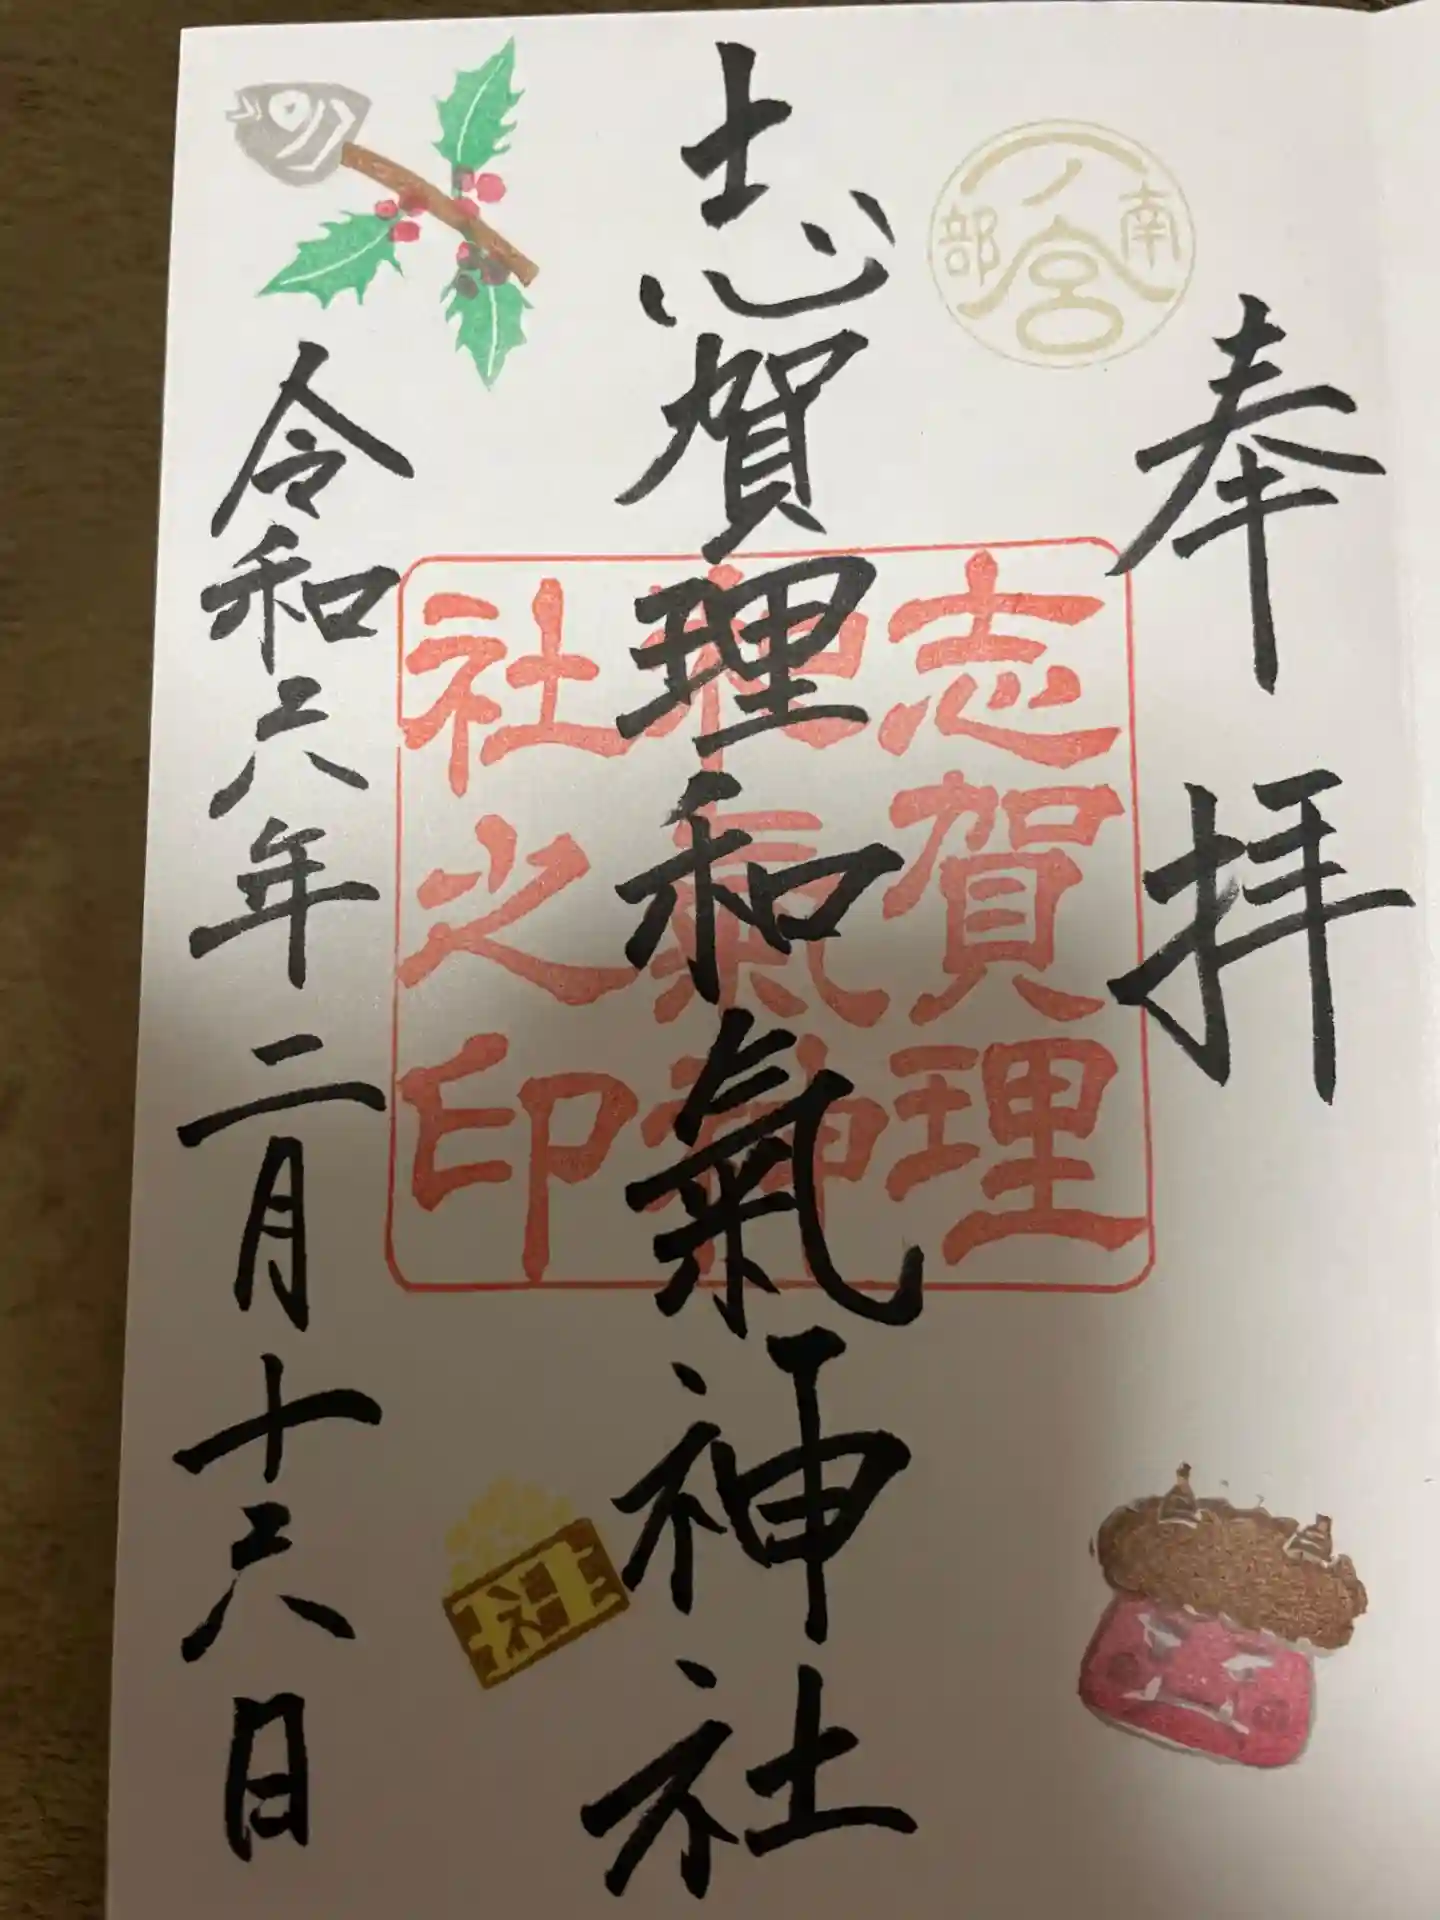 奉拝
南部
一ノ宮
志賀理和氣神社
志賀理
和氣神
社之印
令和六年二月十六日
社